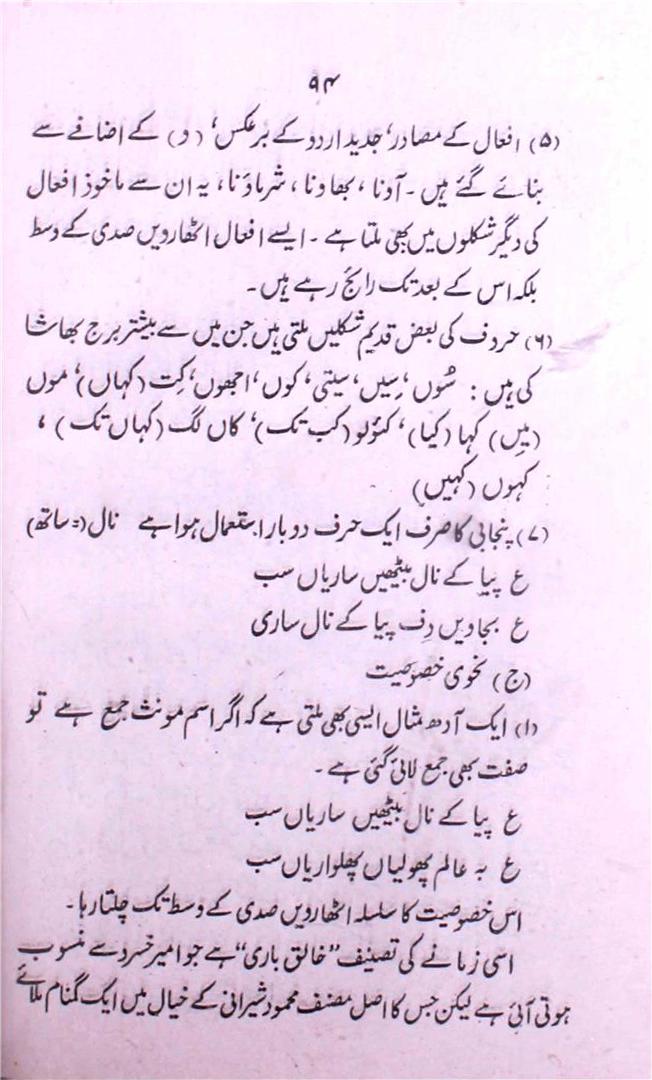 ۹۴
(۵) افعال کے مصادر، جدید اردو کے برعکس، (و) کے اضافے سے
بنائے گئے ہیں ۔ آونا ، بھاونا ، شرماؤنا، یہ ان سے ماخوذ افعال
کی دیگر شکلوں میں بھی ملتا ہے ۔ ایسے افعال اٹھارویں صدی کے وسط
بلکہ اس کے بعد تک رائج رہے ہیں۔
(۶) حروف کی بعض قدیم شکلیں ملتی ہیں جن میں سے بیشتر برج بھاشا
کی ہیں : سُوں، سِیں، سیتی، کوں، اجھوں، کِت (کہاں)، موں
(میں) کہا (کیا)، کئولو (کب تک)، کاں لگ (کہاں تک) ،
کہوں (کہیں)
(۷) پنجابی کا صرف ایک حرف دو بار استعمال ہوا ہے نال (= ساتھ)
ع پیا کے نال بیٹھیں ساریاں سب
ع بجاویں دف پیا کے نال ساری
(ج) نحوی خصوصیت
(۱) ایک آدھ مثال ایسی بھی ملتی ہے کہ اگر اسم مونث جمع ہے تو
صفت بھی جمع لائی گئی ہے ۔
ع پیا کے نال بیٹھیں ساریاں سب
ع بہ عالم پھولیاں پھلواریاں سب
اس خصوصیت کا سلسلہ اٹھارویں صدی کے وسط تک چلتا رہا۔
اسی زمانے کی تصنیف "خالق باری" ہے جو امیر خسرو سے منسوب
ہوتی آئی ہے لیکن جس کا اصل مصنف محمود شیرانی کے خیال میں ایک گمنام ملائے